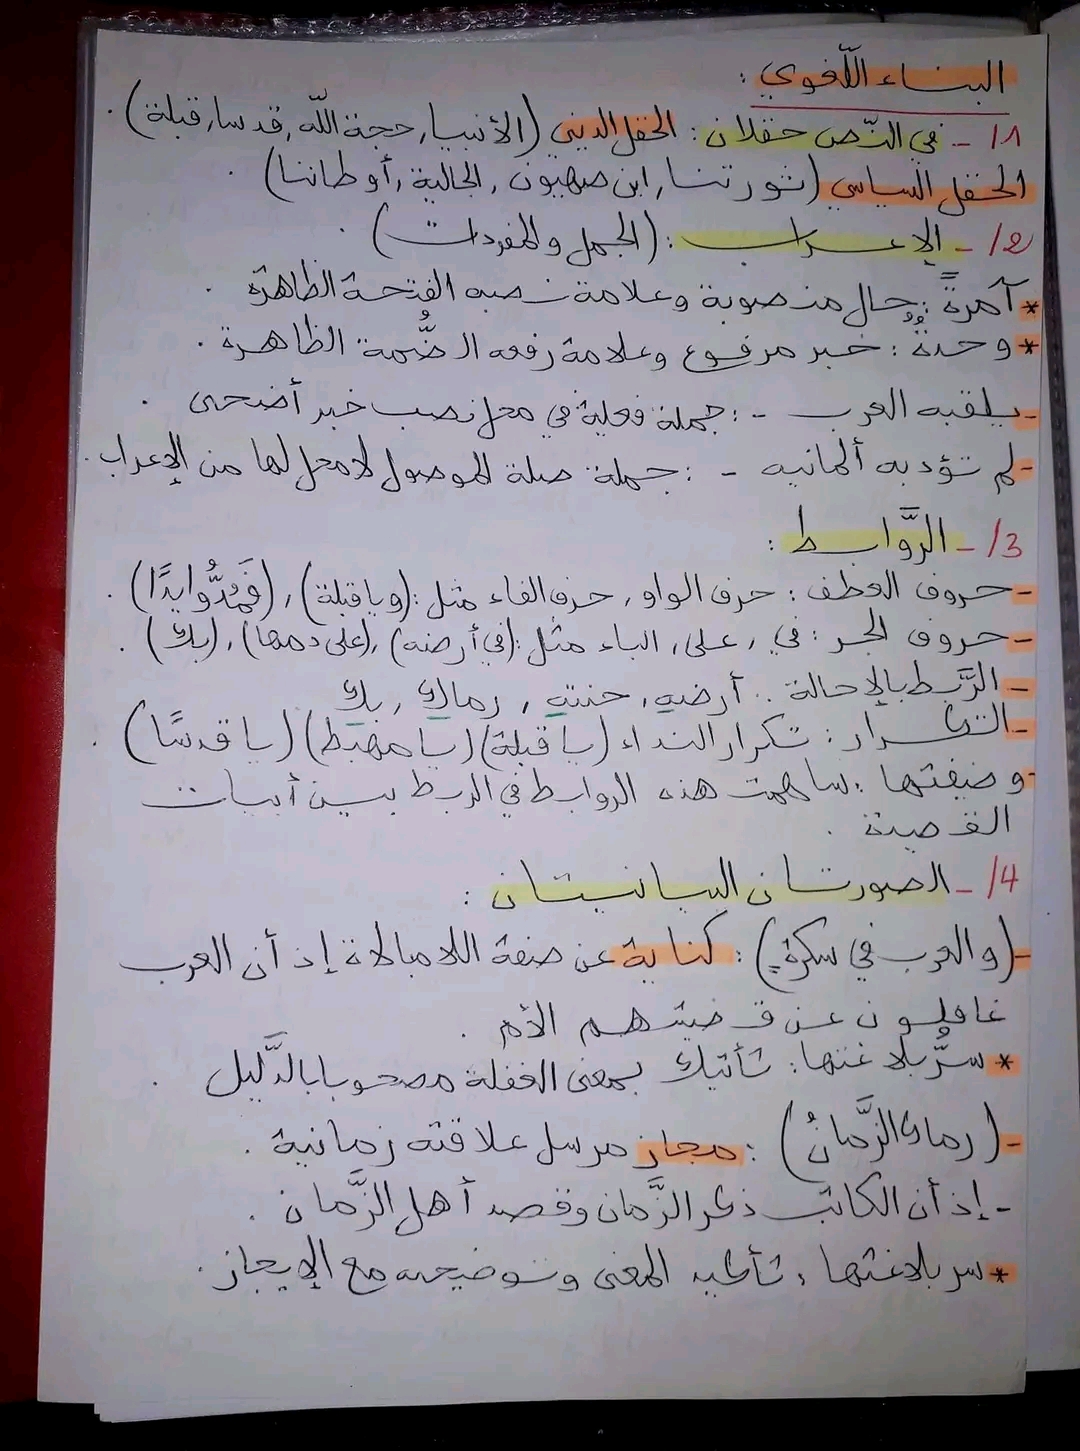 البناء اللّغوي :
1/- في النّص حقلان : الحقل الديني (الأنبيا, حجة اللّه, قدسا, قبلة) .
الحقل السياسي (ثورتنا, ابن صهيون, الجالية, أوطاننا) .
2/- الإعراب : (الجمل والمفردات) .
* آمرةً : حال منصوبة وعلامة نصبه الفتحة الظاهرة .
* وحدةٌ : خبر مرفوع وعلامة رفعه الضُّمة الظاهرة .
- يلقبه العرب - : جملة فعلية في محل نصب خبر أضحى .
- لم تؤد به أمانيه - : جملة صلة الموصول لا محل لها من الإعراب .
3/- الرَّوابط :
- حروف العطف : حرف الواو, حرف الفاء مثل : (ويا قبلة), (فَمُدُّوا يدًا) .
- حروف الجر : في, على, الباء مثل : (في أرضه), (على دمها), (بك) .
- الرَّبط بالإحالة : أرضه, حنته, رماك, بك
- التكرار : تكرار النداء (يا قبلة) (يا مهبط) (يا قدسًا) .
- وضيفتها : ساهمت هذه الروابط في الربط بين أبيات
القصيدة .
4/- الصورتان البيانيتان :
- (والعرب في سكرة) : كناية عن صفة اللامبالاة إذ أن العرب
غافلون عن قضيتهم الأم .
* سرُّ بلاغتها : تأتيك بمعنى الغفلة مصحوبا بالدَّليل .
- (رماك الزَّمانُ) : مجاز مرسل علاقته زمانية .
- إذ أن الكاتب ذكر الزَّمان وقصد أهل الزَّمان .
* سر بلاغتها : تأكيد المعنى وتوضيحه مع الإيجاز .